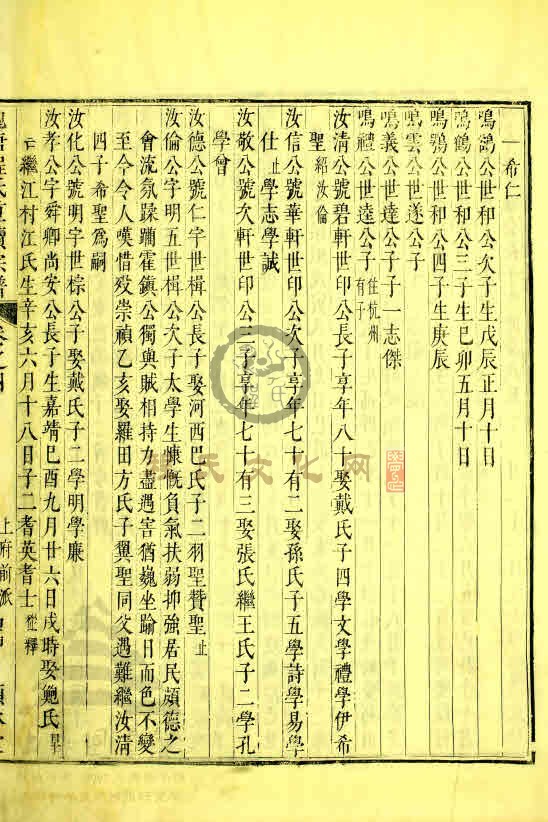 一希仁
鳴鵠公世和公次子生戊辰正月十日
鳴鶴公世和公三子生己卯五月十日
鳴鶚公世和公四子生庚辰
鳴雲公世遂公子
鳴義公世達公子子一志傑
鳴禮公世達公子往杭州有子
汝清公號碧軒世印公長子享年八十娶戴氏子四學文學禮學伊希
聖紹汝倫
汝信公號華軒世印公次子享年七十有二娶孫氏子五學詩學易學
仕止學志學誠
汝敬公號次軒世印公三子享年七十有三娶張氏繼王氏子二學孔
學曾
汝德公號仁宇世楫公長子娶河西巴氏子二羽聖贊聖止
汝倫公字明五世楫公次子太學生慷慨負氣扶弱抑強居民頗德之
會流氛蹂躪霍鎮公獨與賊相持力盡遇害猶巍坐踰日而色不變
至今令人嘆惜歿崇禎乙亥娶羅田方氏子翼聖同父遇難繼汝清
四子希聖爲嗣
汝化公號明宇世棕公子娶戴氏子二學明學廉
汝孝公字舜卿尚安公長子生嘉靖己酉九月廿六日戌時娶鮑氏早
亡繼江村江氏生辛亥六月十八日子二耆英耆士從釋
卷之四
上府前派